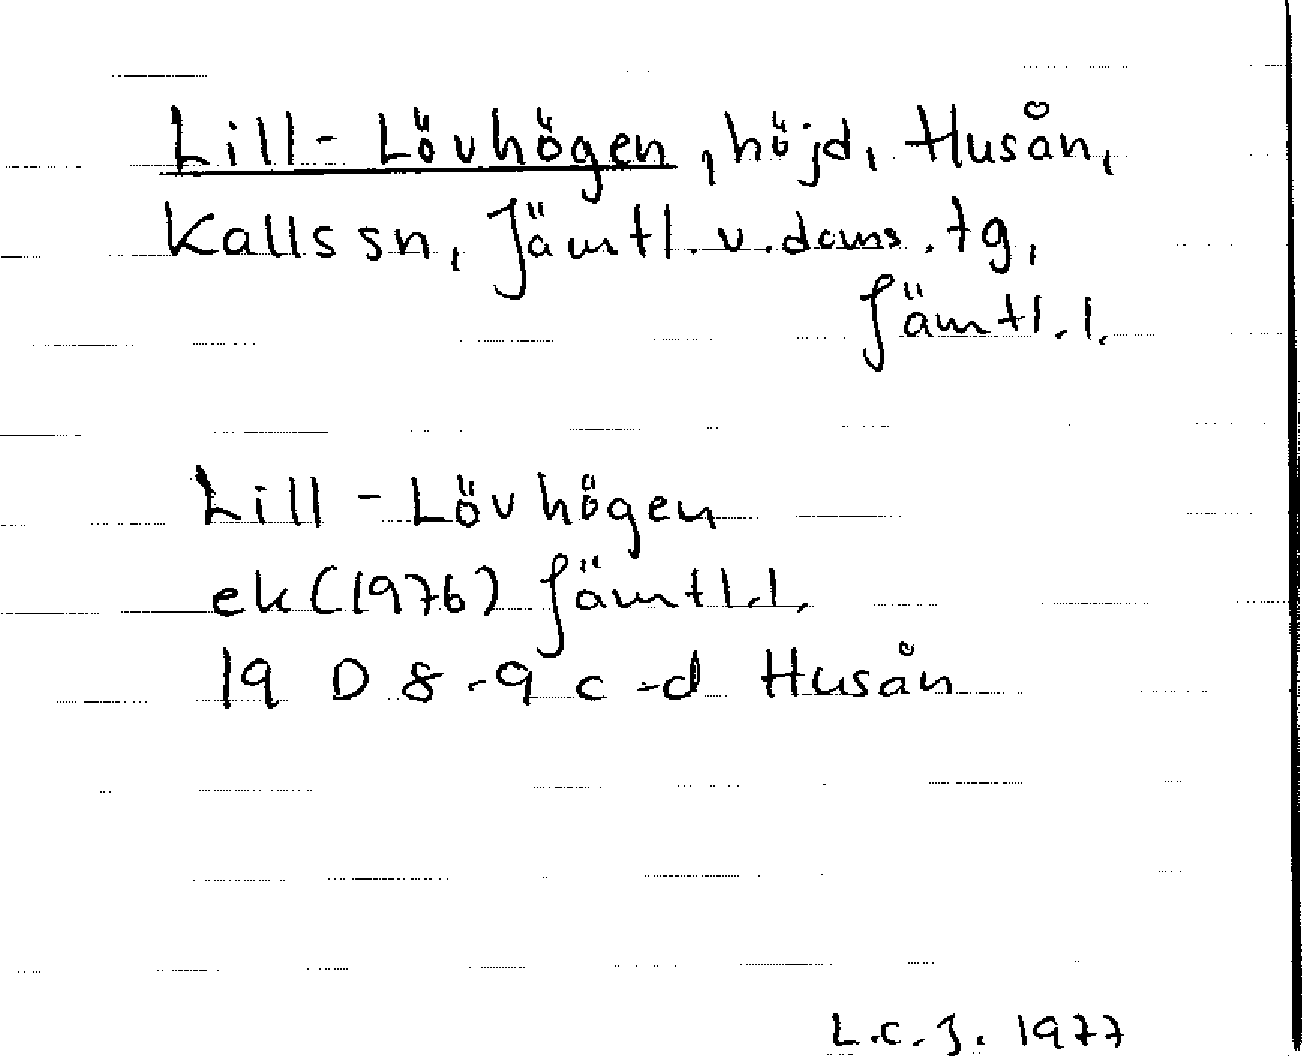 Lill-Lövhögen, höjd, Husån,
Kalls sn, Jämtl. v. doms. tg,
Jämtl. l.
Lill-Lövhögen
ek (1976) Jämtl. l.
19 D 8-9 c-d Husån
L.C.J. 1977